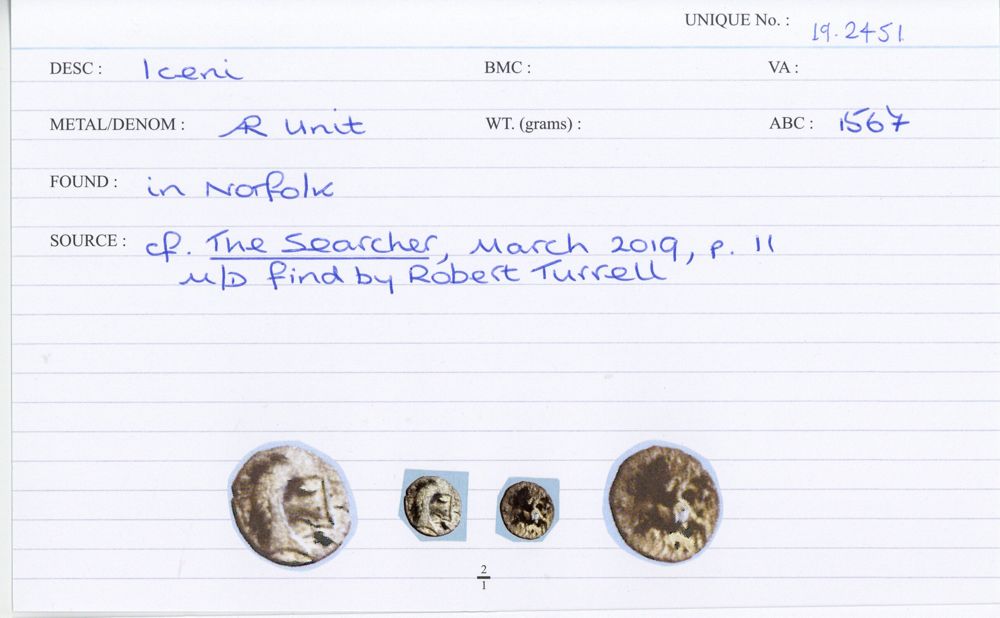 UNIQUE No. : 19.2451
DESC : Iceni BMC : VA :
METAL/DENOM : AR Unit WT. (grams) : ABC : 1567
FOUND : in Norfolk
SOURCE : cf. The Searcher, March 2019, p. 11
M/D find by Robert Turrell
2
1